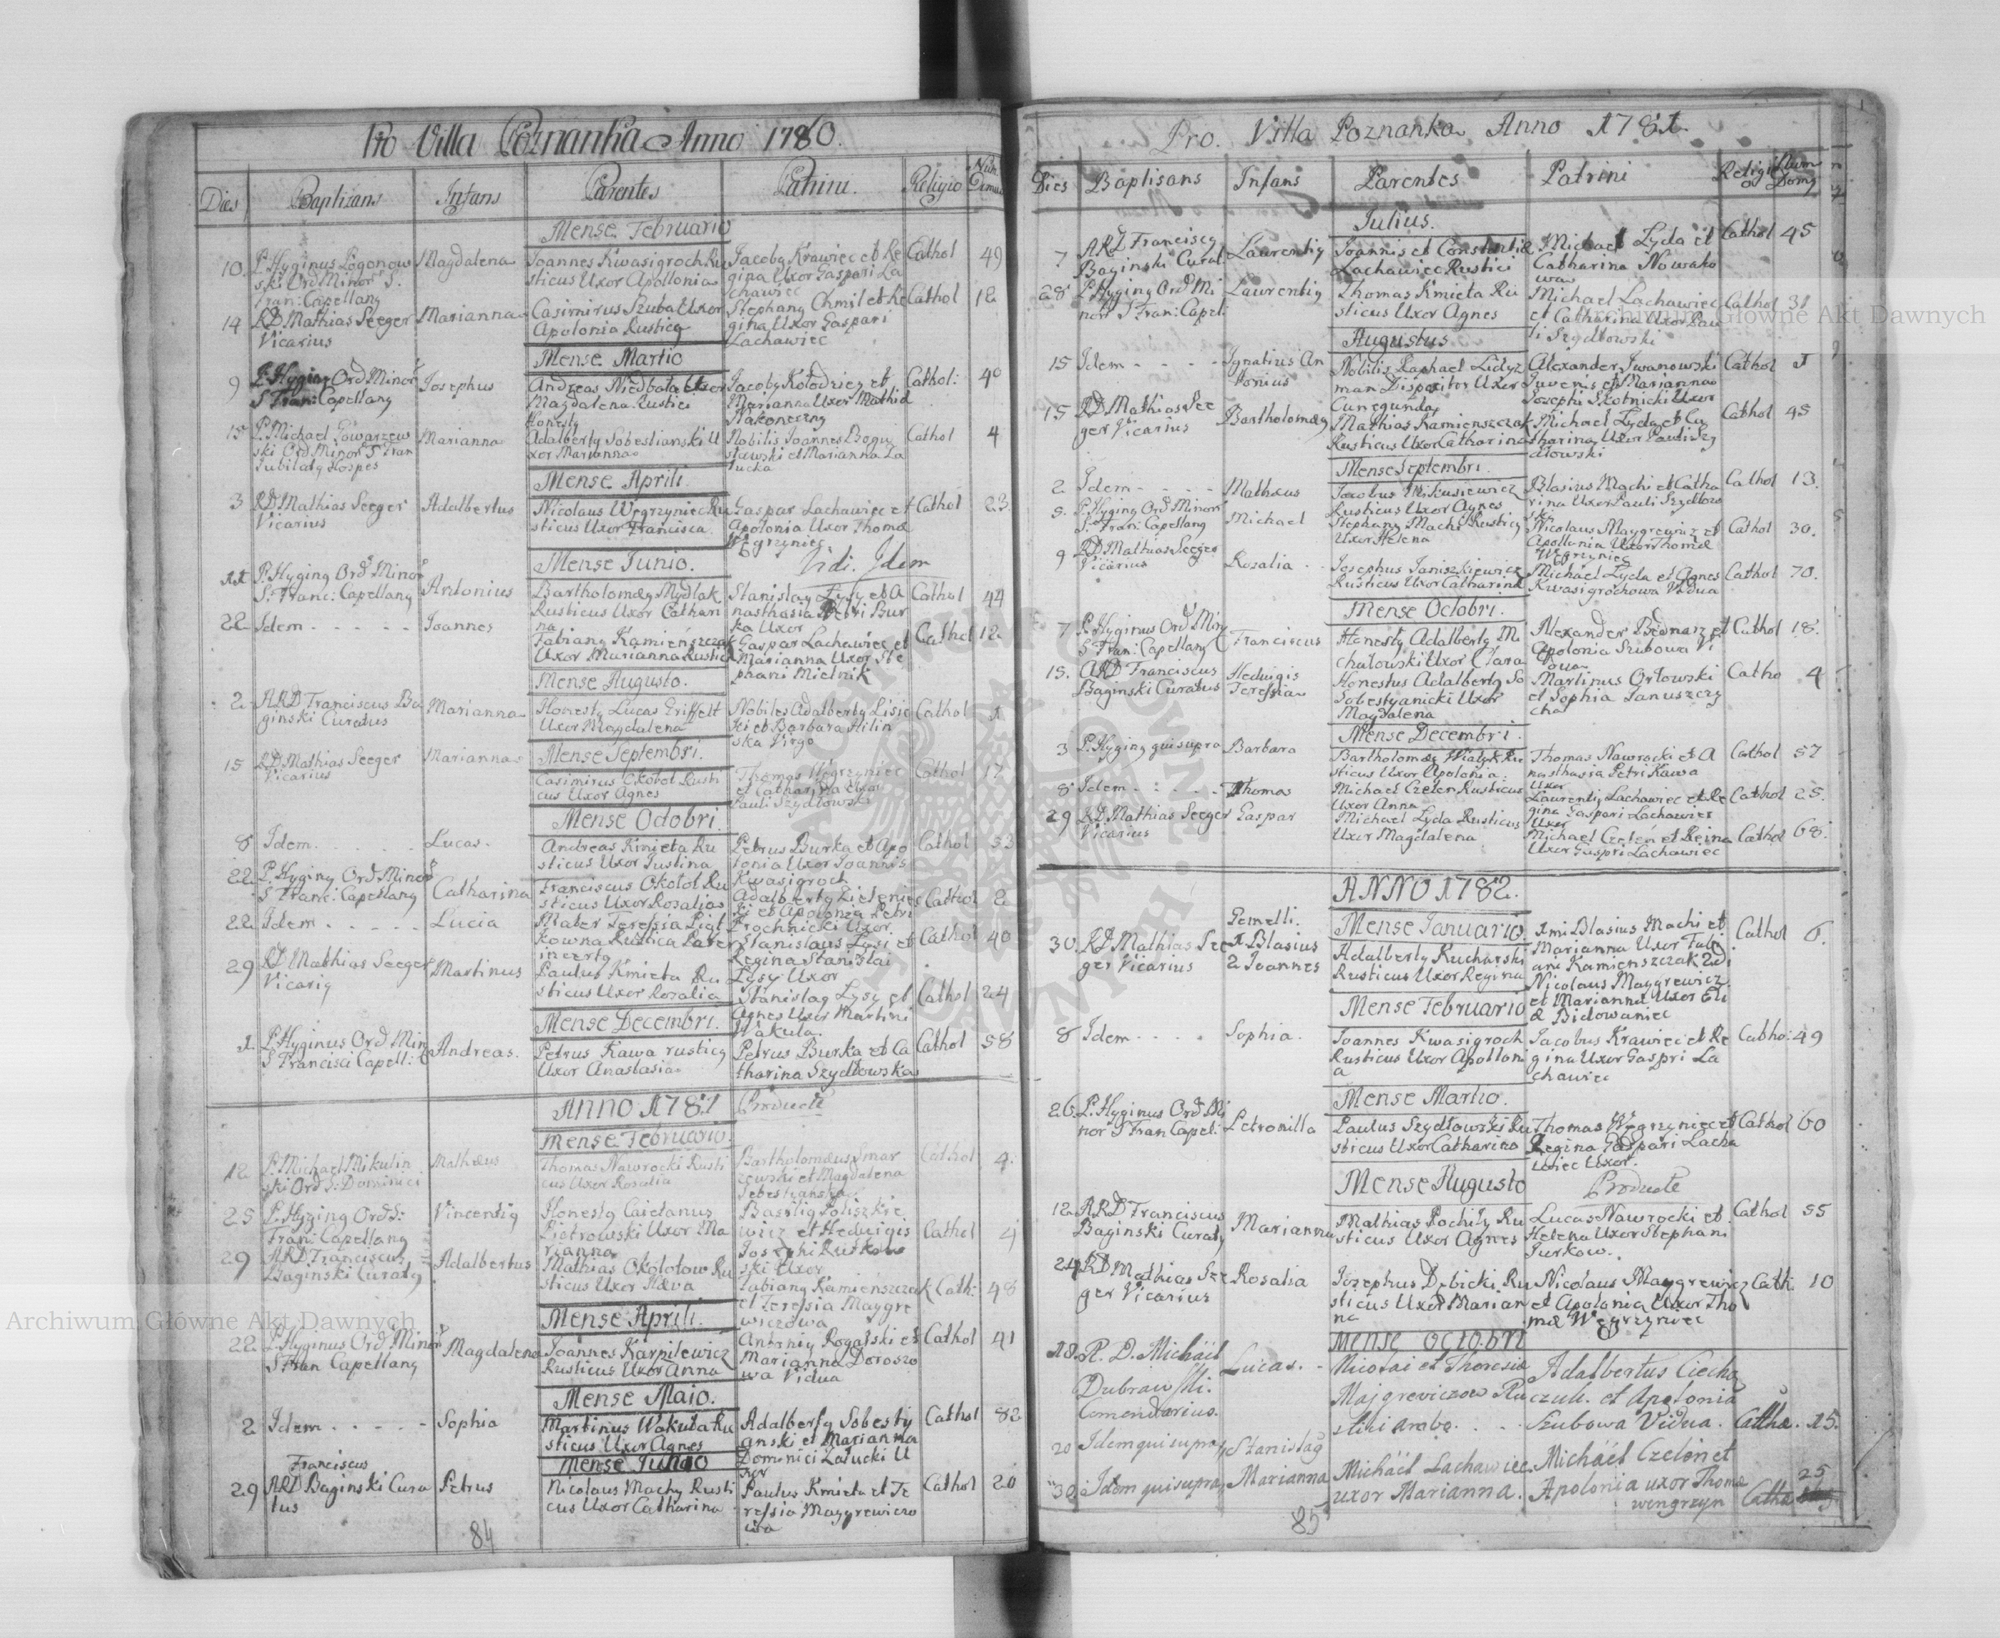 Pro Villa Poznanka Anno 1780.
Dies Baptisans Infans Parentes Patrini Religio Num Domus
Mense Februario
10. P. Hyginus Ord Minor S. Fran: Capellang Magdalena Joannes Kwasigroch Rusticus Uxor Apollonia Jacobg Krawiec et Regina Uxor Gaspari Lachawiec Cathol 49
14 RD Mathias Seeger Vicarius Marianna Casimirus Szuba Uxor Apolonia Rusticg Stephang Chmil et Regina Uxor Gaspari Lachawiec Cathol 12
Mense Martio
9 P. Hyging Ord Minor S Fran: Capellang Josephus Andreas Niedbała Uxor Magdalena Rustici Jacobg Kołodziey et Marianna Uxor Mathiæ Nakoneczng Cathol: 40
15 P. Michael Ord Minor S Fran Jubilatg Hospes Marianna Honestg Adalbertg Sobestianski Uxor Marianna Nobilis Joannes Bogusławski et Marianna Łatucka Cathol 4
Mense Aprili.
3 RD Mathias Seeger Vicarius Adalbertus Nicolaus Węgrzyniec Rusticus Uxor Francisca Gaspar Lachawiec et Apolonia Uxor Thomæ Węgrzyniec Cathol 23
Mense Junio. Vidi. Idem
11 P. Hyging Ord Minor S. Franc: Capellang Antonius Bartholomæg Mydlak Rusticus Uxor Catharina Stanislag Łysy et Anasthasia Petri Burka Uxor Cathol 44
22 Idem - - - - - Joannes Fabiang Kamienszczak Uxor Marianna Rustica Gaspar Lachawiec et Marianna Uxor Stephani Mielnik Cathol 12
Mense Augusto.
2 ARD Franciscus Baginski Curatus Marianna Honestg Lucas Griffelt Uxor Magdalena Nobiles Adalbertg et Barbara Hilinska Virgo Cathol 1
Mense Septembri.
15 RD Mathias Seeger Vicarius Marianna Casimirus Okołot Rusticus Uxor Agnes Thomas Węgrzyniec et Catharina Uxor Pauli Szydłowski Cathol 17
Mense Octobri.
8 Idem. - - - - Lucas. Andreas Kmieta Rusticus Uxor Justina Petrus Burka et Apolonia Uxor Joannis Kwasigroch Cathol 53
22 P. Hyging Ord Minor S Franc: Capellang Catharina Franciscus Okołot Rusticus Uxor Rosalia Adalbertg et Apolonia Petri Uxor Cathol 2
22 Idem. - - - - Lucia Mater Teressia Rustica Pater incertg Stanislaus Łysi et Regina Stanislai Łysy Uxor Cathol 40
29 RD Mathias Seeger Vicarig Martinus Paulus Kmieta Rusticus Uxor Rosalia Stanislag Łysy et Agnes Uxor Martini Wakuła. Cathol 24
Mense Decembri.
1. P. Hyginus Ord Min S Francisci Capell: Andreas. Petrus Kawa rusticg Uxor Anastasia Petrus Burka et Catharina Szydłowska Cathol 58
ANNO 1781 Producte
Mense Februario.
12 P. Michael Mikulinski Ord S: Dominici Mathæus Thomas Nawrocki Rusticus Uxor Rosalia Bartholomæus et Magdalena Sebestianska Cathol 4.
25 P. Hyging Ord S: Fran: Capellang Vincentig Honestg Caietanus Piotrowski Uxor Marianna Basilig et Hedwigis Josephi Uxor Cathol 4
29 ARD Franciscus Baginski Curatg Adalbertus Mathias Okołotow Rusticus Uxor Hæva Fabiang Kamienszczak et Teressia Maygrewiczowa Cath: 48
Mense Aprili.
22 P. Hyginus Ord Minor S Fran Capellang Magdalena Joannes Karpilewicz Rusticus Uxor Anna Antonig Rogalski et Marianna Doroszowa Vidua Cathol 41
Mense Maio.
2 Idem - - - - - Sophia Martinus Wakuła Rusticus Uxor Agnes Adalbertg Sobestyanski et Marianna Dominici Łatucki Uxor Cathol 82
Mense Junio
29 ARD Franciscus Baginski Curatus Petrus Nicolaus Machy Rusticus Uxor Catharina Paulus Kmieta et Teressia Maygrewiczowa Cathol 20
84
Pro. Villa Poznanka Anno 1781.
Dies Baptisans Infans Parentes Patrini Religio Num Domg
Julius.
7 ARD Franciscg Baginski Curat Laurentig Joannis et Constantia Lachawiec Rustici Michael Łyda et Catharina Nowakowa Cathol 45
28 P. Hyging Ord Minor S Fran: Capel: Laurentig Thomas Kmieta Rusticus Uxor Agnes Michael Lachawiec et Catharina Uxor Pauli Szydłowski Cathol 31
Augustus
15 Idem - - - - Ignatius Antonius Nobilis Raphael Lidyzman Dispositor Uxor Cunegunda Alexander Iwanowski Juvenis et Marianna Josephi Słotnicki Uxor Cathol 1
15 RD Mathias Seeger Vicarius Bartholomæg Mathias Kamienszczak Rusticus Uxor Catharina Michael Łyda et Catharina Uxor Pauli Szydłowski Cathol 45
Mense Septembri.
2 Idem - - - - Mathæus Jacobus Mikusiewicz Rusticus Uxor Agnes Blasius Machi et Catharina Uxor Pauli Szydłowski Cathol 13.
5. P. Hyging Ord Minor S. Fran: Capellang Michael Stephang Machi Rusticg Uxor Helena Nicolaus Maygrewicz et Apollonia Uxor Thomæ Węgrzyniec Cathol 30.
9 RD Mathias Seeger Vicarius Rosalia Josephus Janiszkiewicz Rusticus Uxor Catharina Michael Łyda et Agnes Kwasigrochowa Vidua Cathol 70.
Mense Octobri.
7 P. Hyginus Ord Min S Fran: Capellang Franciscus Honestg Adalbertg Michałowski Uxor Clara Alexander Bednarz et Apolonia Szubowa Vidua Cathol 18.
15. ARD Franciscus Baginski Curatus Hedwigis Teressia Honestus Adalbertg Sobestyanicki Uxor Magdalena Martinus Orłowski et Sophia Januszczycha Catho 4
Mense Decembri.
3 P. Hyging qui supra Barbara Bartholomæg Wiatyk Rusticus Uxor Apolonia Thomas Nawrocki et Anasthasia Petri Kawa Uxor Cathol 57
8 Idem - - - - Thomas Michael Czelen Rusticus Uxor Anna Laurentig Lachawiec et Regina Gaspari Lachawiec Uxor Cathol 25.
29 RD Mathias Seeger Vicarius Gaspar Michael Łyda Rusticus Uxor Magdalena Michael Czeleń et Regina Uxor Gaspri Lachawiec Cathol 68.
ANNO 1782.
Mense Januario
30. RD Mathias Seeger Vicarius Gemelli. 1 Blasius 2 Joannes Adalbertg Kucharski Rusticus Uxor Regina 1mi Blasius Machi et Marianna Uxor Fabiani Kamienszczak 2di Nicolaus Maygrewicz et Marianna Uxor Eliæ Bidowaniec Cathol 6.
Mense Februario
8 Idem - - - - Sophia. Joannes Kwasigroch Rusticus Uxor Apollonia Jacobus Krawiec et Regina Uxor Gaspri Lachawiec Cathol: 49
Mense Martio.
26. P. Hyginus Ord Minor S Fran Capel: Petronilla Paulus Szydłowski Rusticus Uxor Catharina Thomas Węgrzyniec et Regina Gaspari Lachawiec Uxor. Cathol 60
Mense Augusto Producte
12. ARD Franciscus Baginski Curatg Marianna Mathias Pochiły Rusticus Uxor Agnes Lucas Nawrocki et Helena Uxor Stephani Jurkow. Cathol 55
24 RD Mathias Seeger Vicarius Rosalia Josephus Dębicki Rusticus Uxor Marianna Nicolaus Maygrewicz et Apolonia Uxor Thomæ Węgrzyniec Cath. 10
Mense Octobri
18. R. D. Michäel Dubrawski. Comendarius. Lucas. - Nicolai et Theresia Majgreviczow Rustici ambo. Adalbertus Ciechaczuk. et Apolonia Szubowa Vidua. Catha. 15.
20 Idem qui supra, Stanislag
30. Idem qui supra, Marianna Michäel Lachawiec. uxor Marianna. Michäel Czelon et Apolonia uxor Thomæ wengrzyn Catha 25
85
Archiwum Główne Akt Dawnych
Archiwum Główne Akt Dawnych
ARCHIWUM GŁÓWNE AKT DAWNYCH